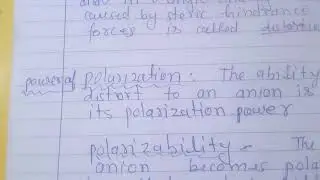 caused by steric hindrance
forces is called distortion
power of polarization: The ability
distort to an anion is
its polarization power
polarizability - The
anion becomes pola